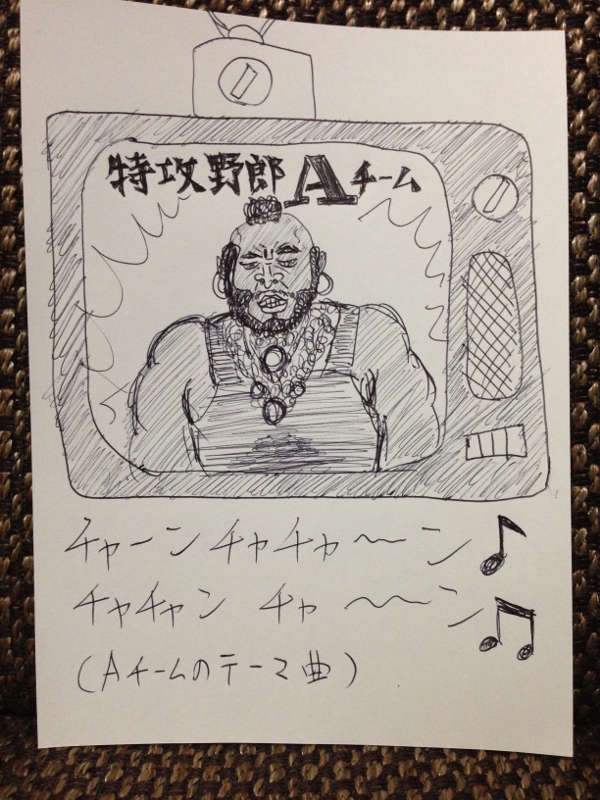 特攻野郎Aチーム
チャーンチャチャ〜〜ン♪
チャチャン チャ〜〜ン♫
(Aチームのテーマ曲)